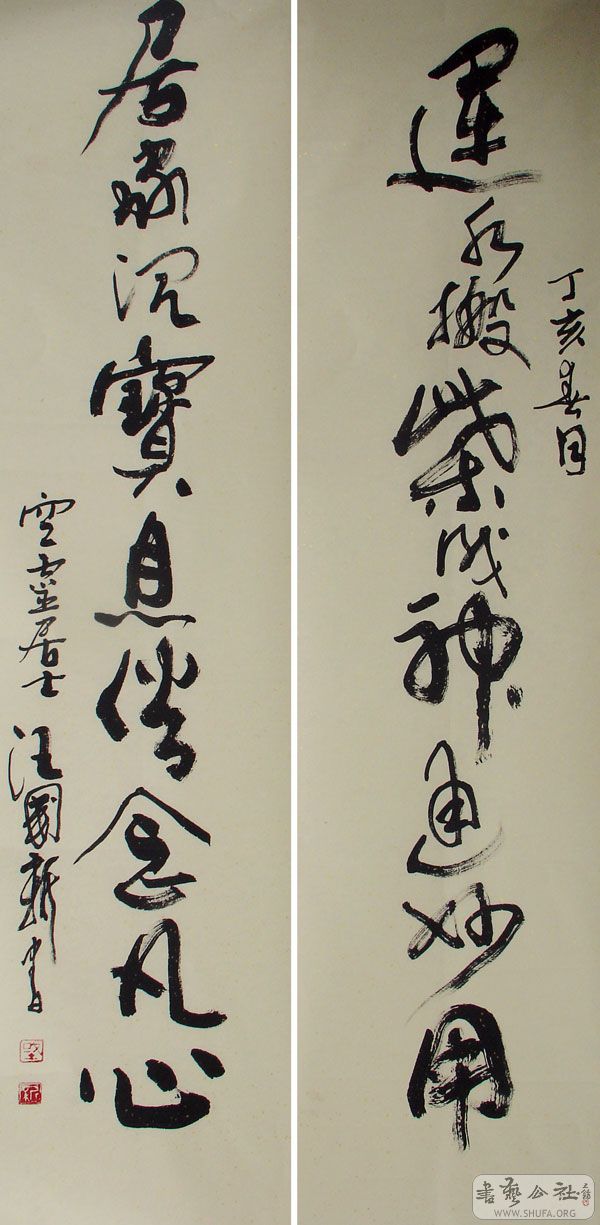 丁亥春月
運水搬柴成神通妙用
居家寶息俗念凡心
空靈居士 汪國新書
書藝公社
WWW.SHUFA.ORG